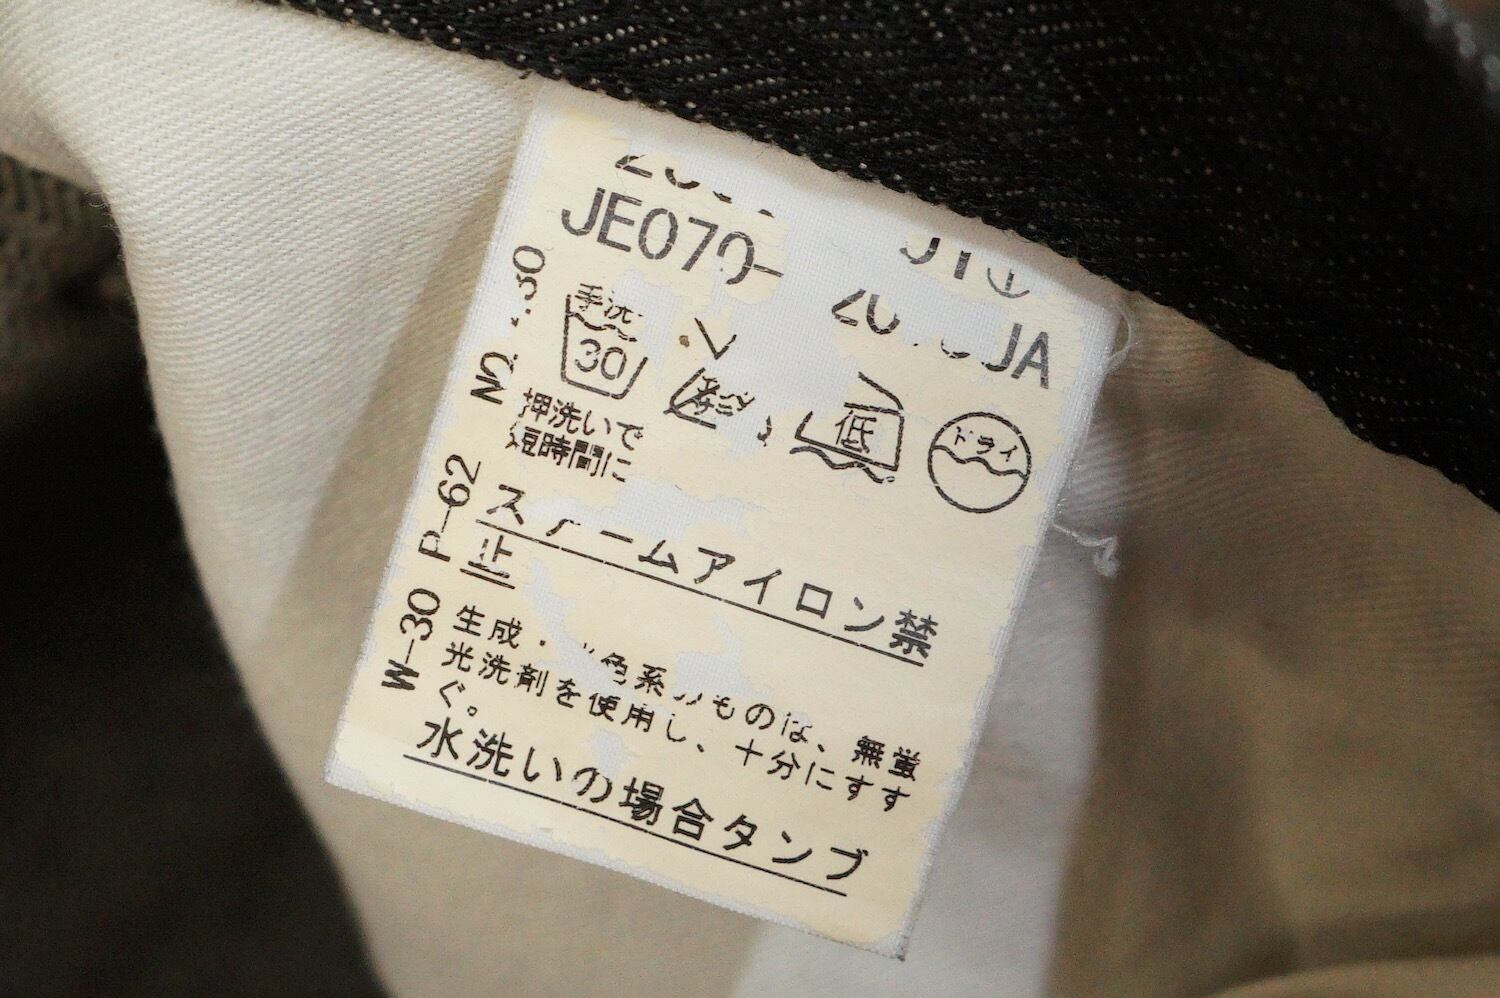 JE070-
JA
手洗
30
低
ドライ
押洗いで
短時間に
スチームアイロン禁
止
生成・ 色系のものは、無蛍
光洗剤を使用し、十分にすす
ぐ。
水洗いの場合タンブ
W-30 P-62 NO. 30